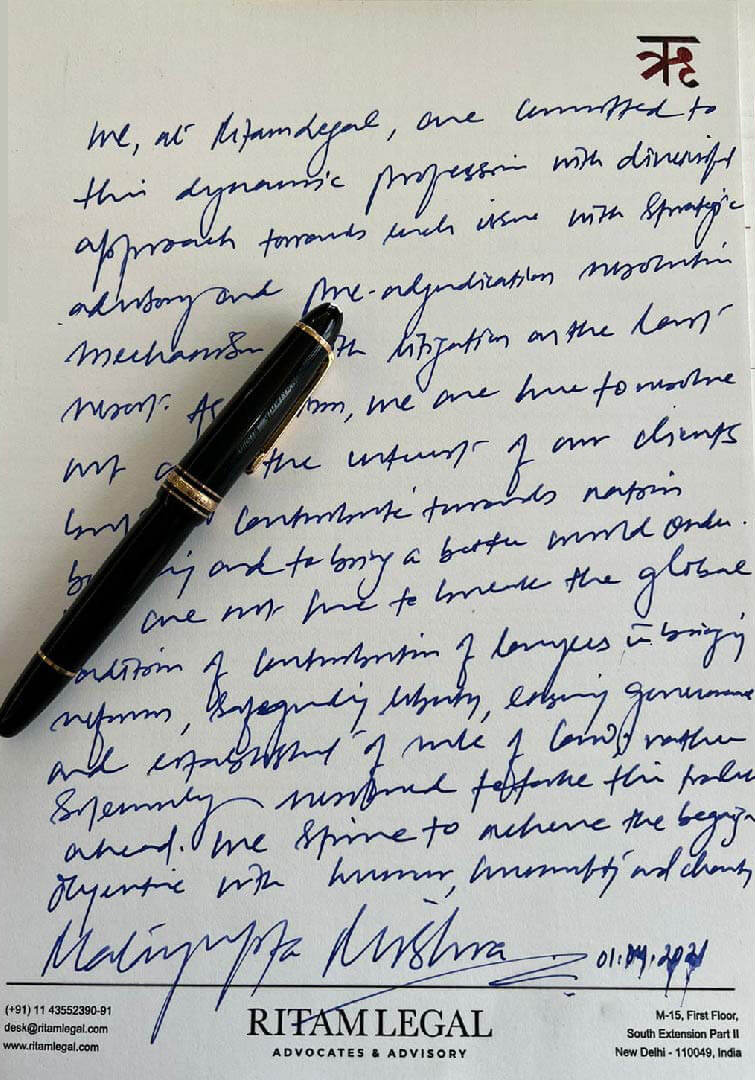 ऋ
We, at RitamLegal, are committed to
this dynamic profession with diversified
approach towards each issue with strategic
advisory and pre-adjudication resolution
mechanism with litigation as the last
resort. As, we are here to resolve
not the interest of our clients
but contribute towards nation
and to bring a better world order.
are not here to break the global
tradition of contribution of lawyers in bringing
reforms, safeguarding liberty, easing governance
and establishment of rule of law, rather
solemnly resolved to take this
ahead. We strive to achieve the
objective with honour, humility and
01.04.2021
(+91) 11 43552390-91
desk@ritamlegal.com
www.ritamlegal.com
RITAMLEGAL
ADVOCATES & ADVISORY
M-15, First Floor,
South Extension Part II
New Delhi - 110049, India